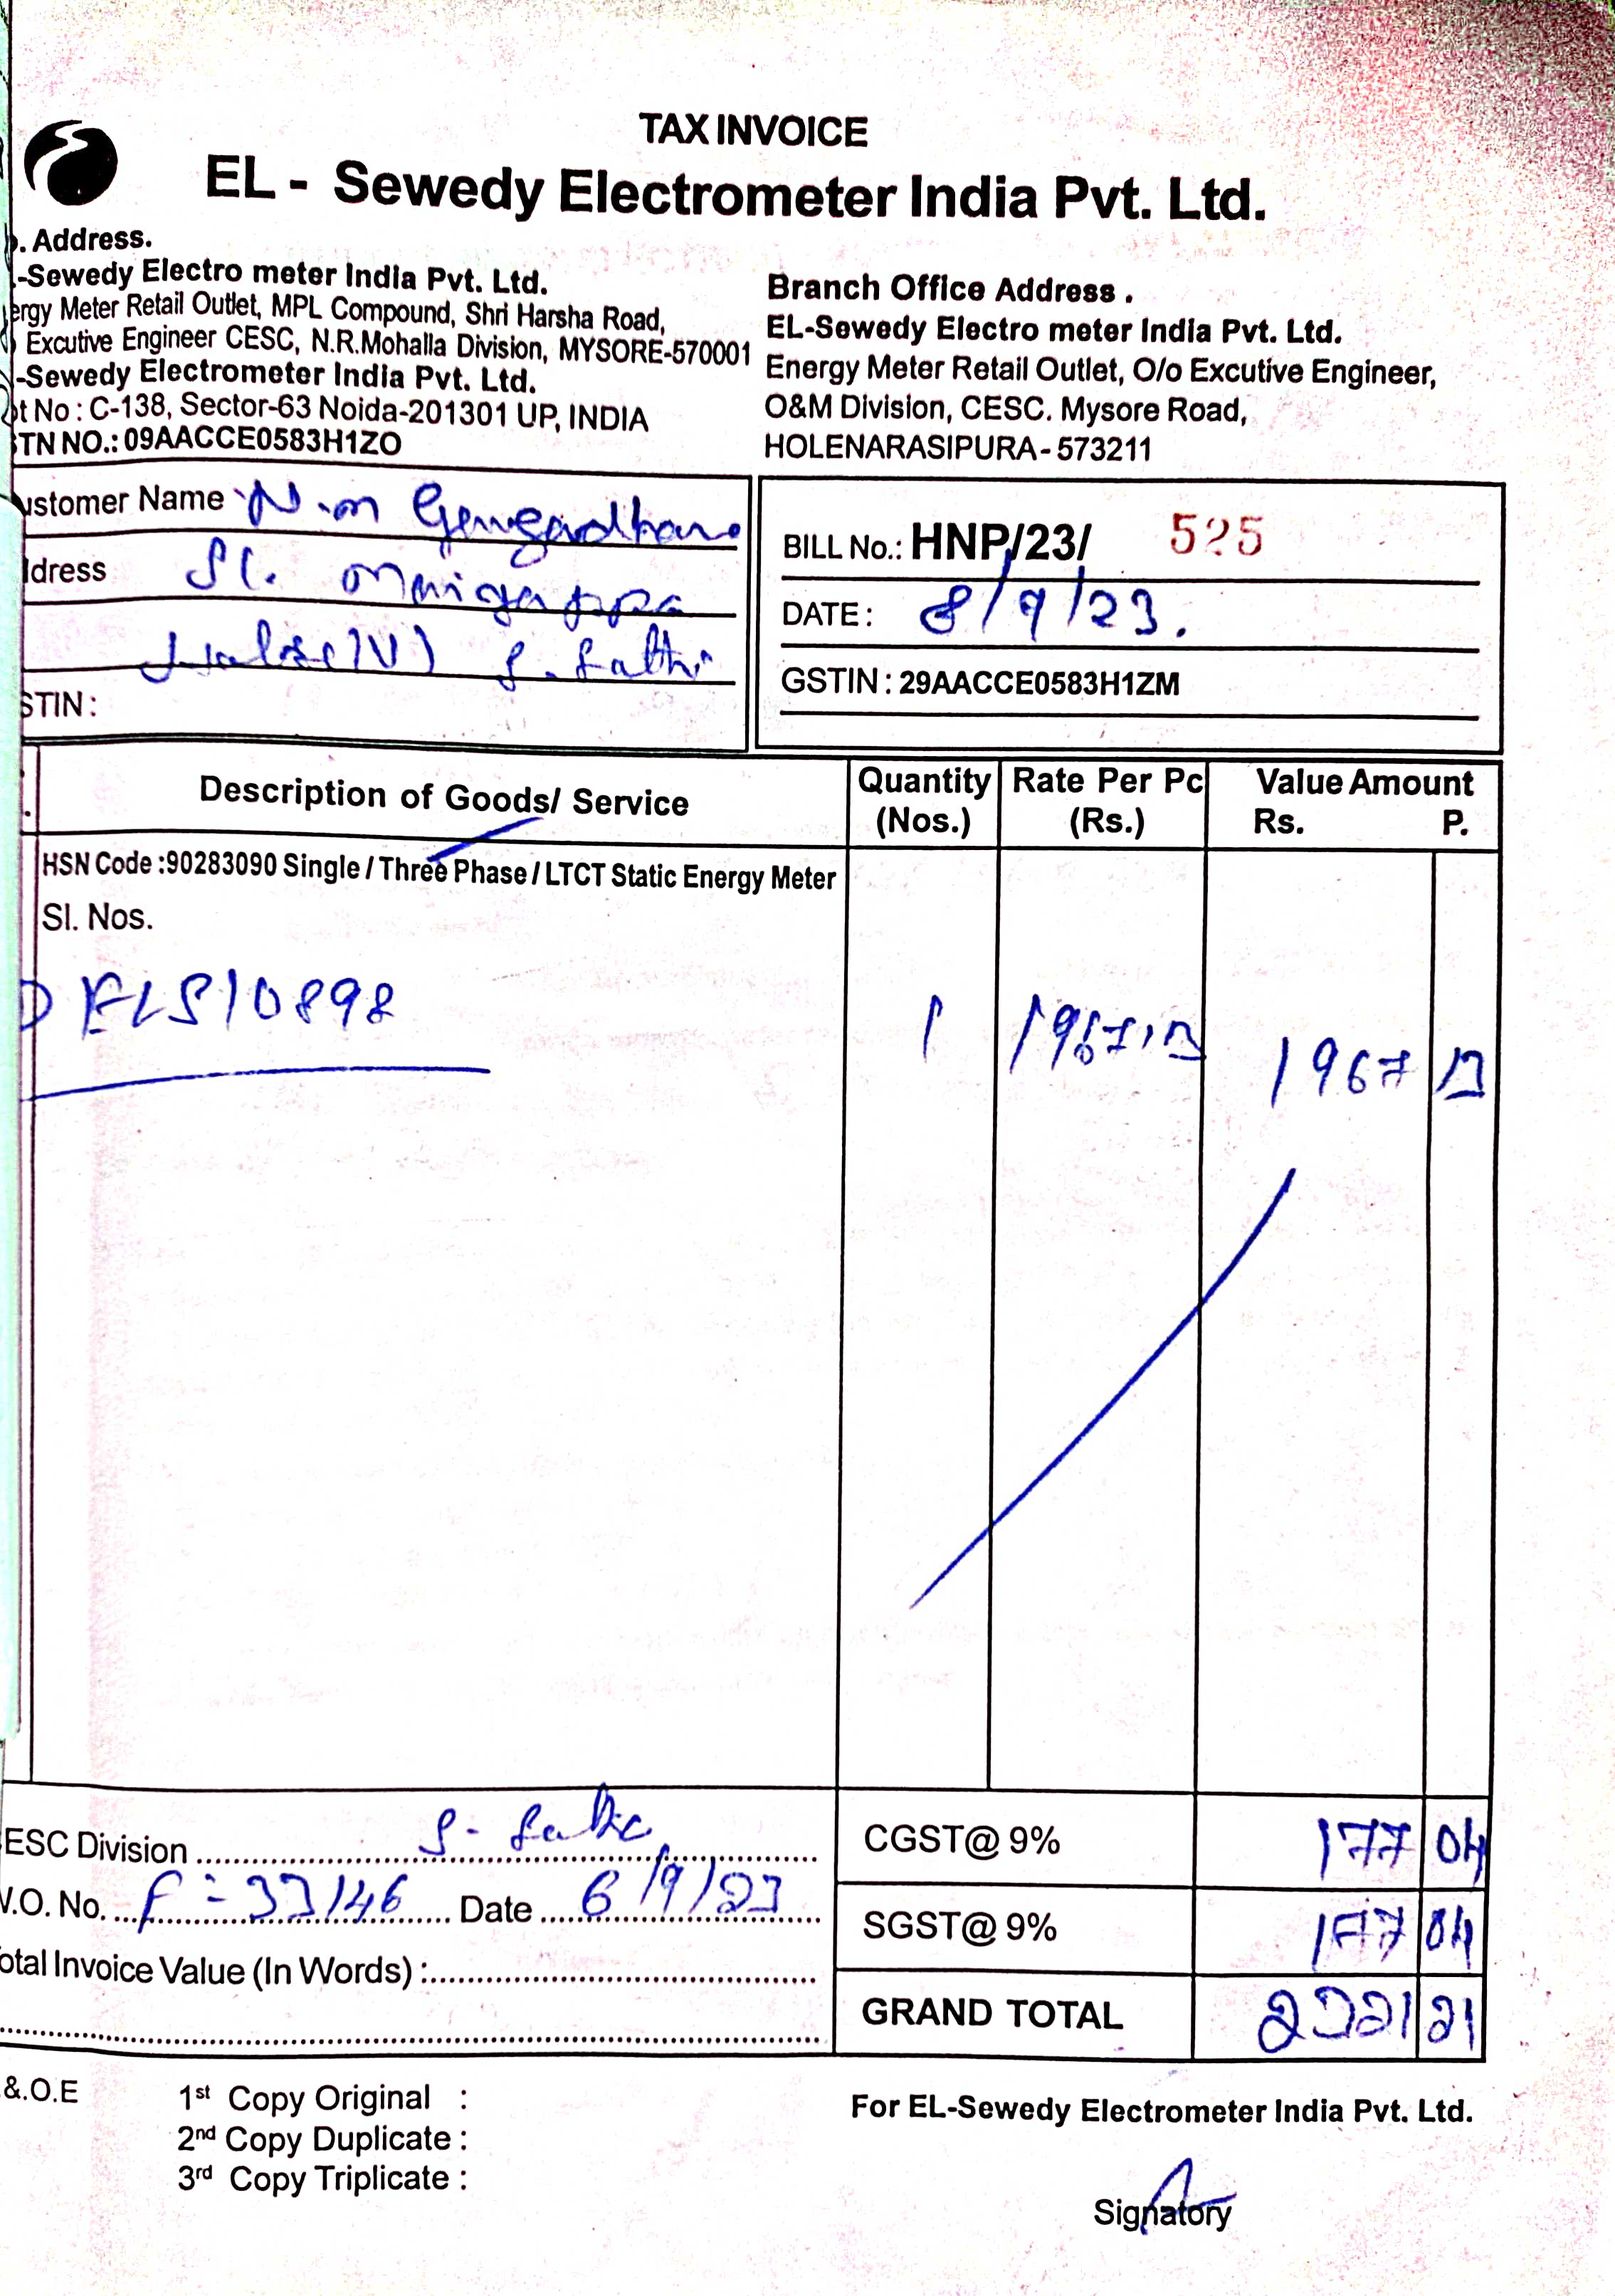 TAX INVOICE
EL - Sewedy Electrometer India Pvt. Ltd.
. Address.
-Sewedy Electro meter India Pvt. Ltd.
ergy Meter Retail Outlet, MPL Compound, Shri Harsha Road,
Excutive Engineer CESC, N.R.Mohalla Division, MYSORE-570001
-Sewedy Electrometer India Pvt. Ltd.
t No : C-138, Sector-63 Noida-201301 UP, INDIA
TN NO.: 09AACCE0583H1ZO
Branch Office Address .
EL-Sewedy Electro meter India Pvt. Ltd.
Energy Meter Retail Outlet, O/o Excutive Engineer,
O&M Division, CESC. Mysore Road,
HOLENARASIPURA - 573211
ustomer Name N.m
dress
STIN :
BILL No.: HNP/23/ 525
DATE : 8/9/23.
GSTIN : 29AACCE0583H1ZM
Description of Goods/ Service
Quantity (Nos.)
Rate Per Pc (Rs.)
Value Amount
Rs. P.
HSN Code :90283090 Single / Three Phase / LTCT Static Energy Meter
Sl. Nos.
ELS10898 1 1967.13 1967 13
ESC Division
CGST@ 9% 177 04
.O. No. Date 6/9/23
SGST@ 9% 177 04
otal Invoice Value (In Words) :
GRAND TOTAL 2321 21
&.O.E
1st Copy Original :
2nd Copy Duplicate :
3rd Copy Triplicate :
For EL-Sewedy Electrometer India Pvt. Ltd.
Signatory